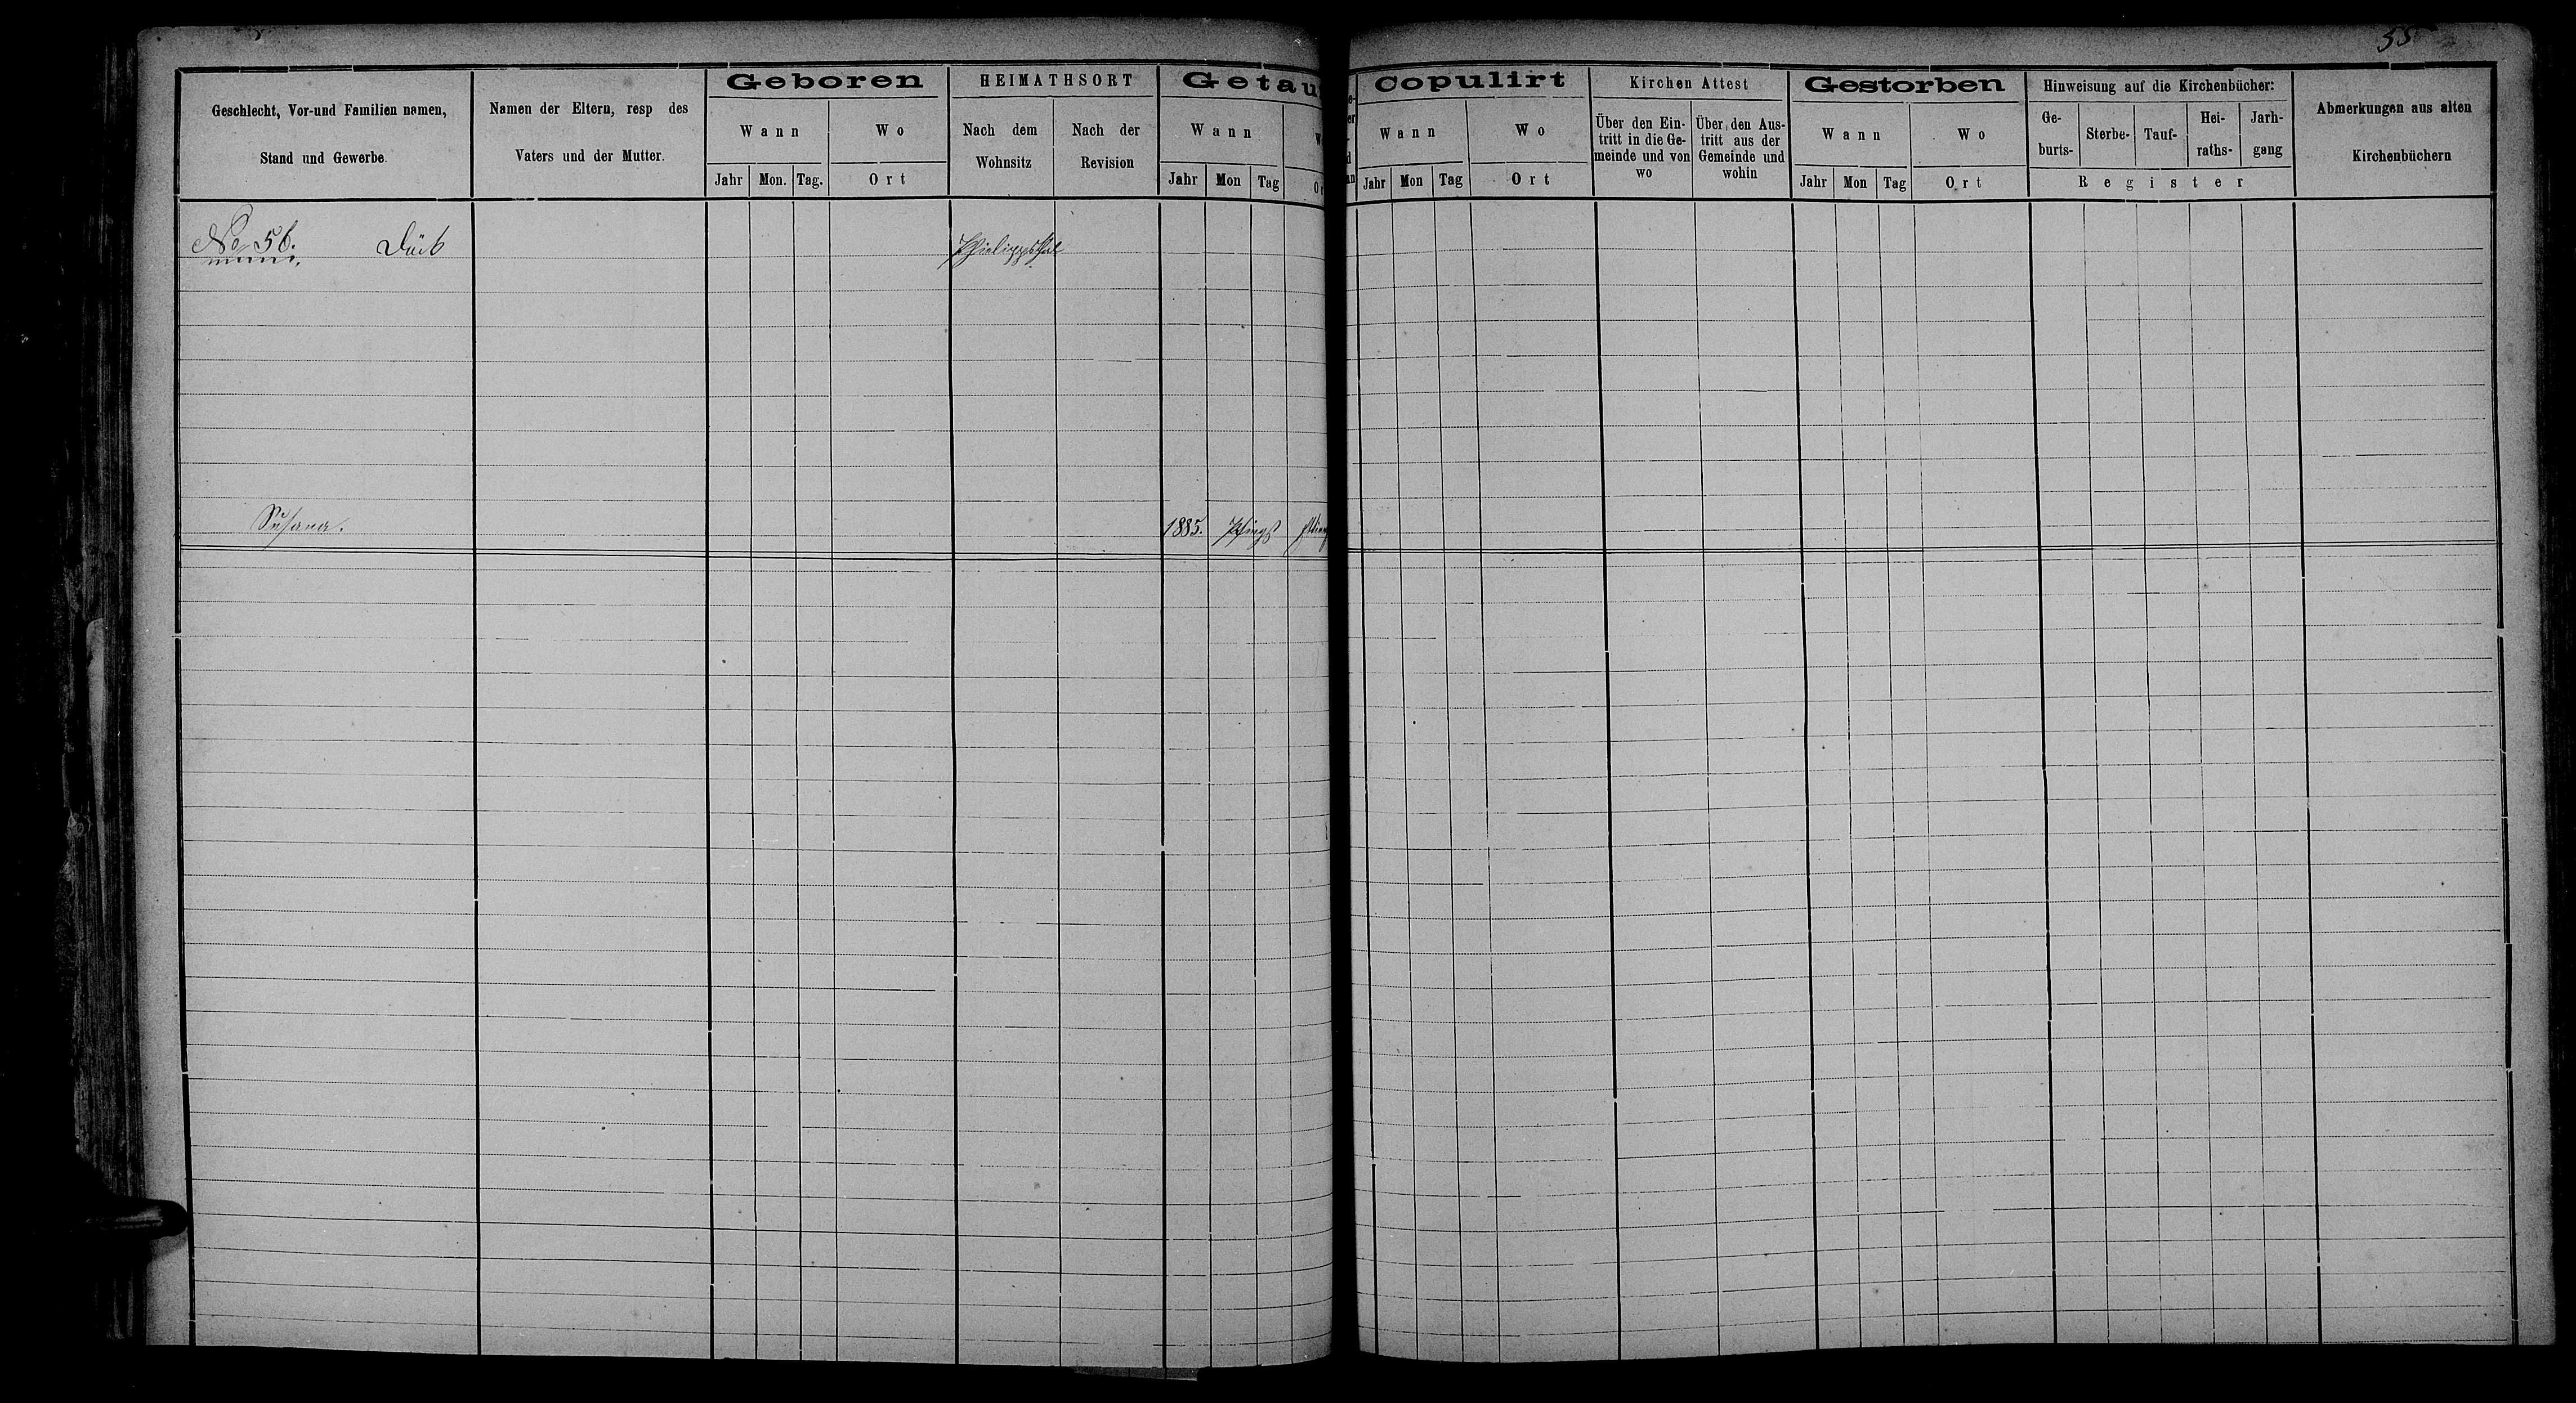 55
Geschlecht, Vor-und Familien namen,
Stand und Gewerbe.
Namen der Eltern, resp des
Vaters und der Mutter.
Geboren
Wann
Wo
Jahr Mon. Tag.
Ort
HEIMATHSORT
Nach dem
Wohnsitz
Nach der
Revision
Getau
Wann
W
Jahr Mon Tag
Or
Copulirt
Wann
Wo
Jahr Mon Tag
Ort
Kirchen Attest
Über den Ein-
tritt in die Ge-
meinde und von
wo
Über den Aus-
tritt aus der
Gemeinde und
wohin
Gestorben
Wann
Wo
Jahr Mon Tag
Ort
Hinweisung auf die Kirchenbücher:
Ge-
burts-
Sterbe-
Tauf-
Hei-
raths-
Jarh-
gang
Register
Abmerkungen aus alten
Kirchenbüchern
No 56. Dück
Susana. 1885. Pfingst